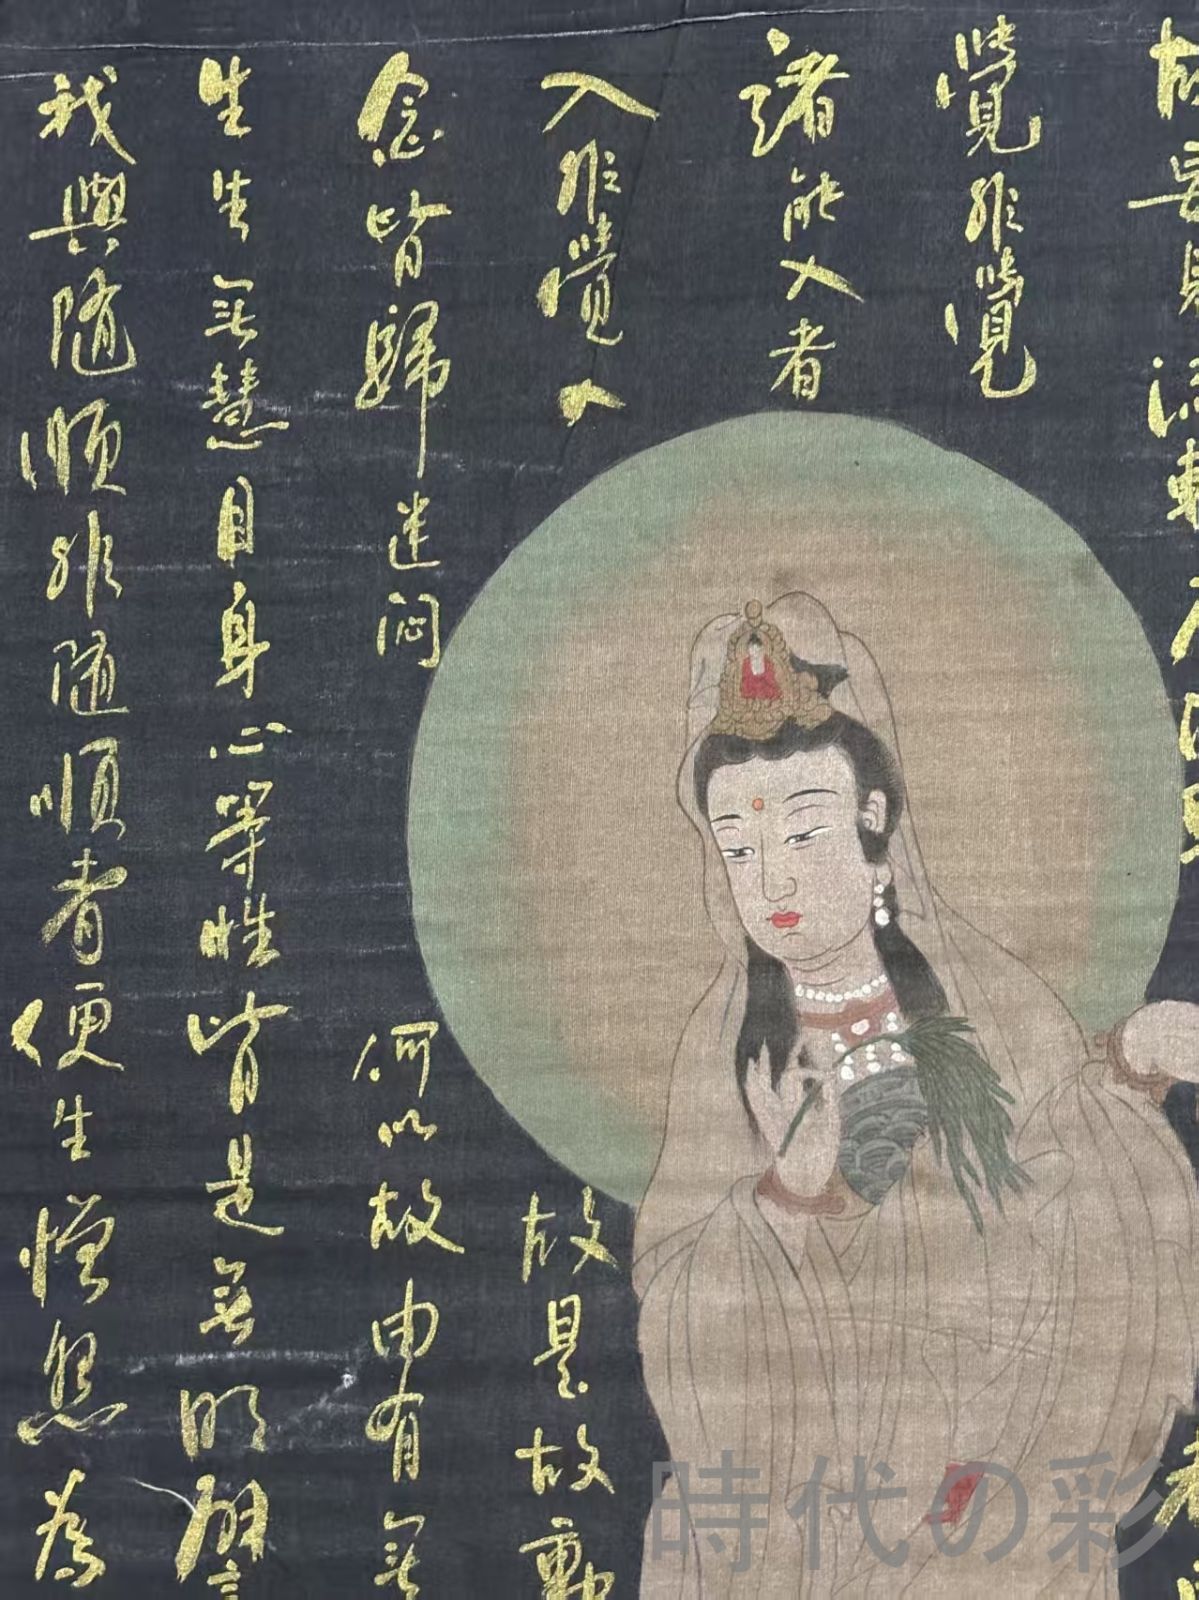 故妄見流轉
覺非覺
諸能入者
入非覺入故是故動
念皆歸迷悶何以故由有無
生生無慧目身心等性皆是無明譬
我與隨順非隨順者便生憎怨為
時代の彩